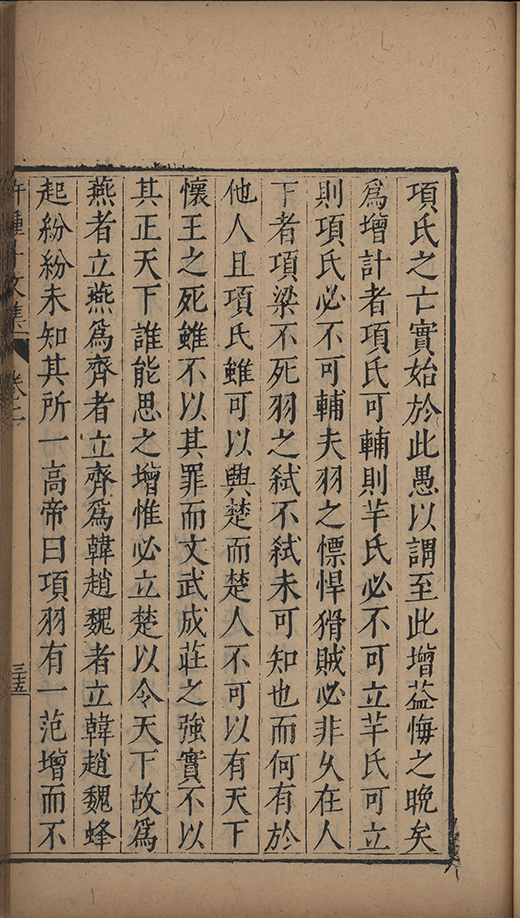 項氏之亡實始於此愚以謂至此增蓋悔之晚矣
爲增計者項氏可輔則羋氏必不可立羋氏可立
則項氏必不可輔夫羽之慓悍猾賊必非久在人
下者項梁不死羽之弒不弒未可知也而何有於
他人且項氏雖可以興楚而楚人不可以有天下
懷王之死雖不以其罪而文武成莊之強實不以
其正天下誰能思之增惟必立楚以令天下故爲
燕者立燕爲齊者立齊爲韓趙魏者立韓趙魏蜂
起紛紛未知其所一高帝曰項羽有一范增而不
許鍾斗文集 卷二 三十五